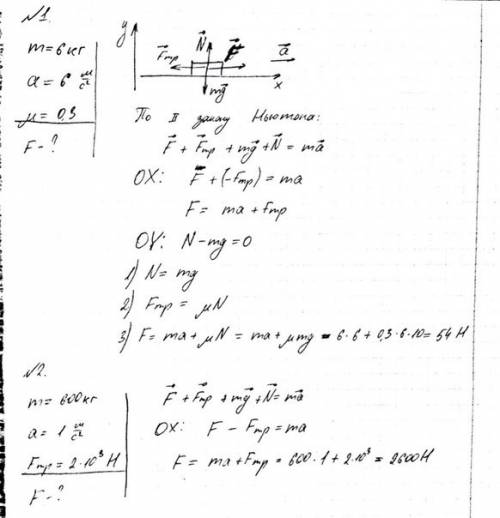 №1.
m=6 кг
a=6 м/с²
μ=0,3
F-?
y
F⃗тр N⃗ F⃗ a⃗
mg⃗ x
По II закону Ньютона:
F⃗ + F⃗тр + mg⃗ + N⃗ = ma⃗
OX: F + (-Fтр) = ma
F = ma + Fтр
OY: N - mg = 0
1) N = mg
2) Fтр = μN
3) F = ma + μN = ma + μmg = 6·6 + 0,3·6·10 = 54 Н
№2.
m = 600 кг
a = 1 м/с²
Fтр = 2·10³ Н
F-?
F⃗ + F⃗тр + mg⃗ + N⃗ = ma⃗
OX: F - Fтр = ma
F = ma + Fтр = 600·1 + 2·10³ = 2600 Н